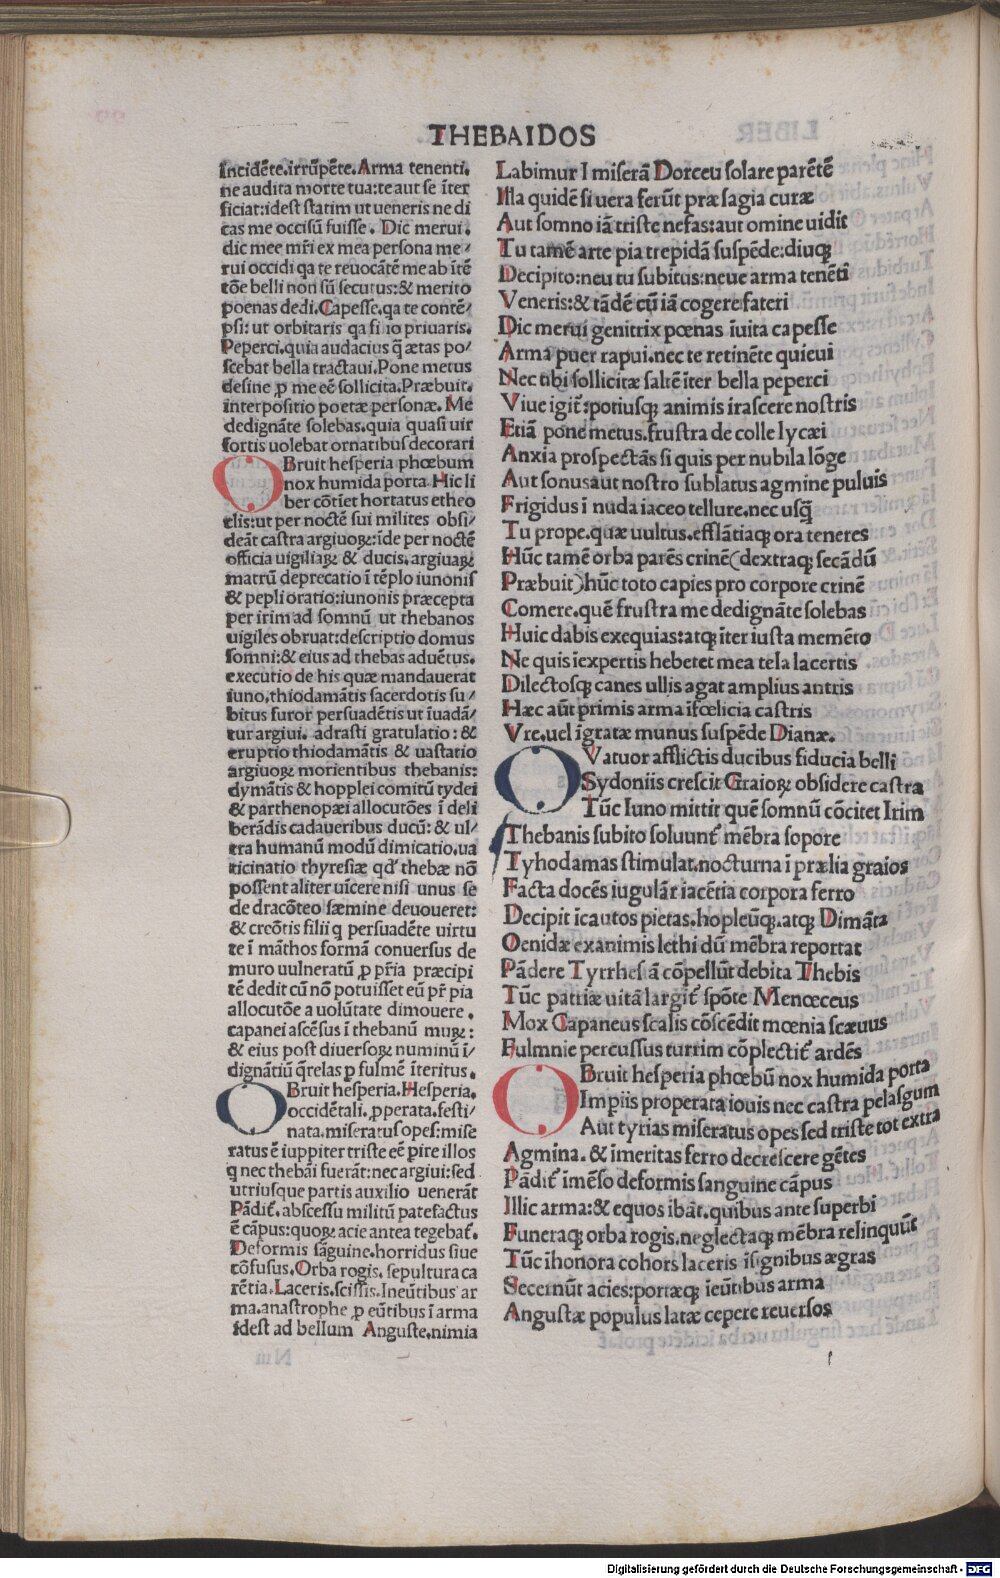 THEBAIDOS
Incidēte.irrūpēte. Arma tenenti.
ne audita morte tua:te aut se īter
ficiat:idest statim ut ueneris ne di
cas me occisū fuisse. Dic merui.
dic mee mr̄i ex mea persona me/
rui occidi qa te reuocātē me ab itē
tōe belli non sū secutus:& merito
poenas dedi. Capesse.qa te contē/
psi: ut orbitaris qa filio priuaris.
Peperci.quia audacius q̄ ætas po/
scebat bella tractaui.Pone metus
desine ꝑ me eē sollicita.Præbuit.
interpositio poetæ personæ. Me
dedignāte solebas.quia quasi uir
fortis uolebat ornatibus decorari
OBruit hesperia phœbum
nox humida porta. Hic li
ber cōtiet hortatus etheo
clis:ut per noctē sui milites obsi/
deāt castra argiuoꝝ:īde per noctē
officia uigiliaꝝ & ducis. argiuaꝝ
matrū deprecatio ī tēplo iunonis
& pepli oratio:iunonis præcepta
per irim ad somnū ut thebanos
uigiles obruat:descriptio domus
somni:& eius ad thebas aduētus.
executio de his quæ mandauerat
iuno.thiodamātis sacerdotis su/
bitus furor persuadētis ut īuadā/
tur argiui. adrasti gratulatio : &
eruptio thiodamātis & uastatio
argiuoꝝ morientibus thebanis:
dymātis & hopplei comitū tydei
& parthenopæi allocutōes ī deli
berādis cadaueribus ducū: & ul/
tra humanū modū dimicatio.ua
ticinatio thyresiæ qđ thebæ nō
possent aliter uīcere nisi unus se
de dracōteo sæmine deuoueret:
& creōtis filii q persuadēte uirtu
te ī māthos formā conuersus de
muro uulneratū ꝑ pr̄ia præcipi
tē dedit cū nō potuisset eū pr̄ pia
allocutōe a uolūtate dimouere.
capanei ascēsus ī thebanū muꝝ:
& eius post diuersoꝝ numinū ī/
dignātiū q̄relas ꝑ fulmē īteritus.
OBruit hesperia. Hesperia.
occidētali. ꝓperata.festi/
nata.miseratus opes:mise
ratus ē iuppiter triste eē ꝑire illos
q nec thebāi fuerāt:nec argiui:sed
utriusque partis auxilio uenerāt
Pādit̄. abscessu militū patefactus
ē cāpus:quoꝝ acie antea tegebat̄.
Deformis sāguine.horridus siue
cōfusus. Orba rogis. sepultura ca
rētia. Laceris.scissis. Ineūtibus ar
ma.anastrophe ꝑ eūtibus ī arma
idest ad bellum Anguste.nimia
Labimur I miserā Dorceu solare parētē
Illa quidē si uera ferūt præsagia curæ
Aut somno iā triste nefas:aut omine uidit
Tu tamē arte pia trepidā suspēde:diuqꝫ
Decipito:neu tu subitus:neue arma tenēti
Veneris:& tādē cū iā cogere fateri
Dic merui genitrix pœnas īuita capesse
Arma puer rapui.nec te retinēte quieui
Nec tibi sollicitæ saltē īter bella peperci
Viue igit̄:potiusqꝫ animis irascere nostris
Etiā pone metus.frustra de colle lycæi
Anxia prospectās si quis per nubila lōge
Aut sonus aut nostro sublatus agmine puluis
Frigidus ī nuda iaceo tellure.nec usq̄
Tu prope.quæ uultus.efflātiaqꝫ ora teneres
Hūc tamē orba parēs crinē(dextraqꝫ secādū
Præbuit)hūc toto capies pro corpore crinē
Comere.quē frustra me dedignāte solebas
Huic dabis exequias:atqꝫ īter iusta memēto
Ne quis īexpertis hebetet mea tela lacertis
Dilectosqꝫ canes ullis agat amplius antris
Hæc aūt primis arma īfœlicia castris
Vre.uel īgratæ munus suspēde Dianæ.
QVatuor afflictis ducibus fiducia belli
Sydoniis crescit Graioꝝ obsidere castra
Tūc Iuno mittit quē somnū cōcitet Irim
Thebanis subito soluunt̄ mēbra sopore
Tyhodamas stimulat.nocturna ī prælia graios
Facta docēs iugulāt iacētia corpora ferro
Decipit īcautos pietas.hopleūqꝫ.atqꝫ Dimāta
Oenidæ exanimis lethi dū mēbra reportat
Pādere Tyrrhesiā cōpellūt debita Thebis
Tūc patriæ uitā largit̄ spōte Menœceus
Mox Capaneus scalis cōscēdit mœnia scæuus
Fulmnie percussus turrim cōplectit̄ ardēs
OBruit hesperia phœbū nox humida porta
Impiis properata iouis nec castra pelasgum
Aut tyrias miseratus opes sed triste tot extra
Agmina. & īmeritas ferro decrescere gētes
Pādit̄ imēso deformis sanguine cāpus
Illic arma:& equos ibāt.quibus ante superbi
Funeraqꝫ orba rogis.neglectaqꝫ mēbra relinquūt
Tūc īhonora cohors laceris īsignibus ægras
Secernūt acies:portæqꝫ ieūtibus arma
Angustæ populus latæ cepere reuersos
Digitalisierung gefördert durch die Deutsche Forschungsgemeinschaft - DFG